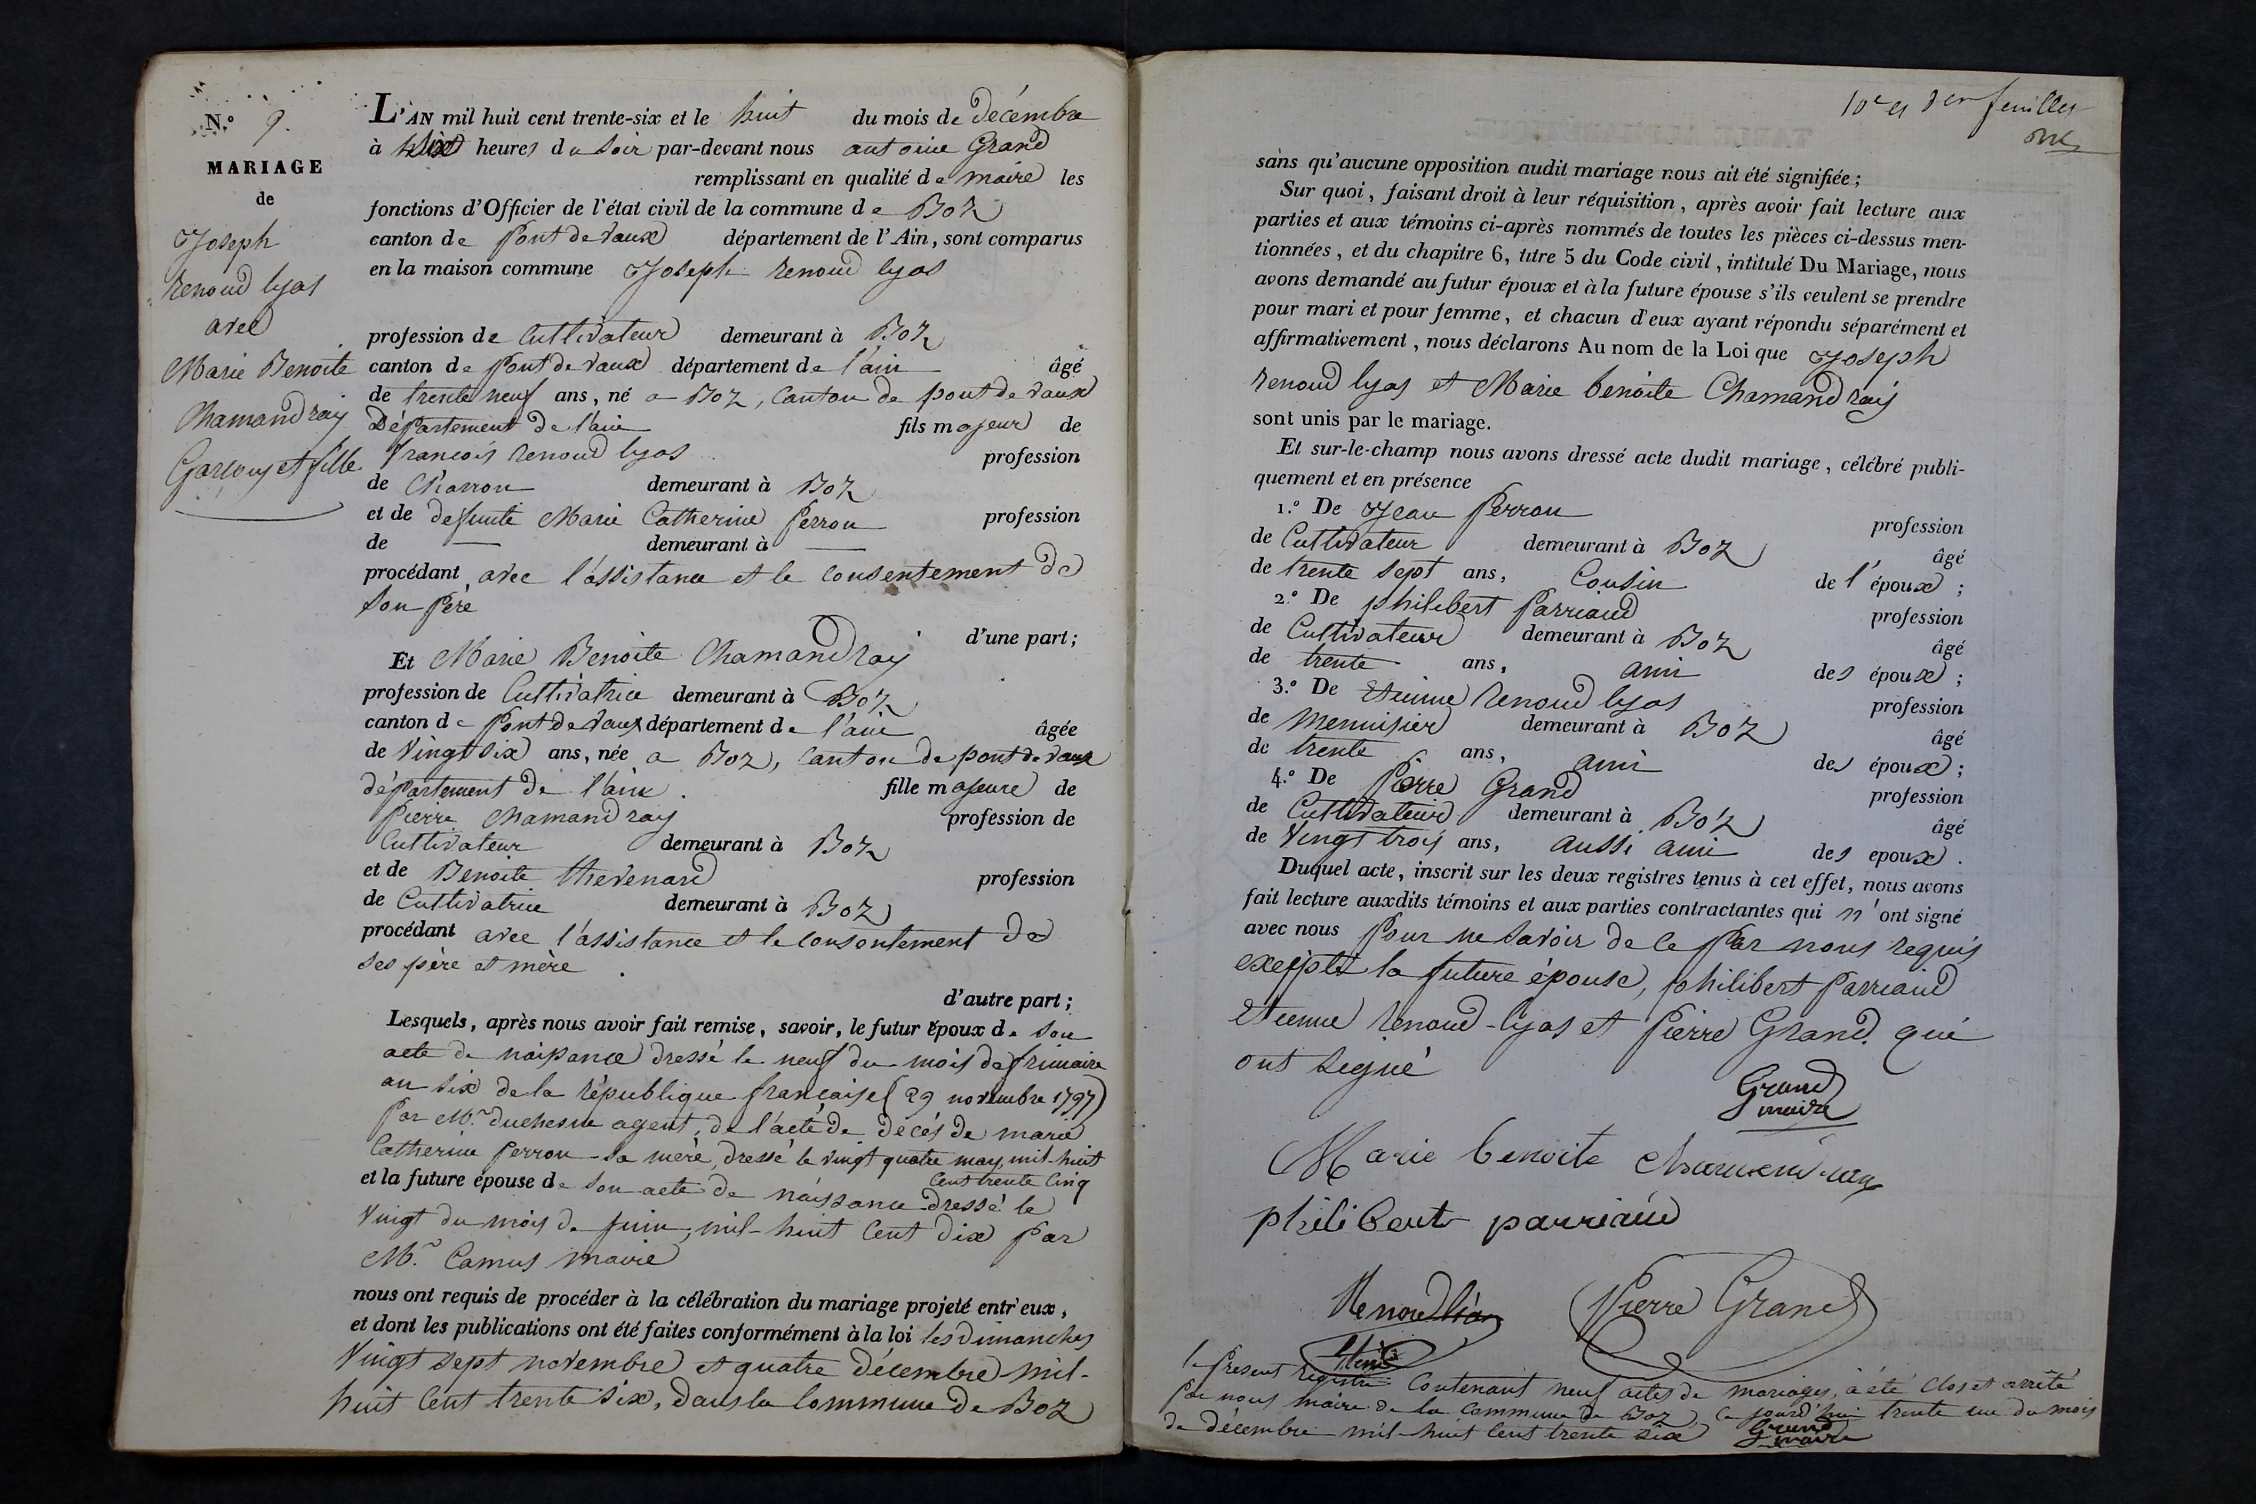 N.º 9.
MARIAGE
de
Joseph
renoud lyas
avec
Marie Benoite
Chamandray
Garçons et fille
L'AN mil huit cent trente-six et le huit du mois de décembre
à heures du soir par-devant nous antoine Grand
remplissant en qualité de maire les
fonctions d'Officier de l'état civil de la commune de Boz
canton de Pont de vaux département de l'Ain, sont comparus
en la maison commune Joseph renoud lyas
profession de Cultivateur demeurant à Boz
canton de Pont de vaux département de l'ain âgé
de trente neuf ans, né a Boz, canton de pont de vaux
Département de l'ain fils majeur de
francois renoud lyas profession
de Charron demeurant à Boz
et de deffunte Marie Catherine Perron profession
de — demeurant à —
procédant avec l'assistance et le consentement de
son Père
d'une part;
Et Marie Benoite Chamandray
profession de Cultivatrice demeurant à Boz
canton de Pont de vaux département de l'ain âgée
de vingt six ans, née a Boz, canton de pont de vaux
département de l'ain. fille majeure de
Pierre Chamandray profession de
Cultivateur demeurant à Boz
et de Benoite thevenard profession
de Cultivatrice demeurant à Boz
procédant avec l'assistance et le consentement de
ses père et mère
d'autre part;
Lesquels, après nous avoir fait remise, savoir, le futur époux de son
acte de naissance dressé le neuf du mois de frimaire
an six de la république française (29 novembre 1797)
par Mr. duchesne agent, de l'acte de décés de marie
Catherine Perron sa mère, dressé le vingt quatre may mil huit
cent trente cinq
et la future épouse de son acte de naissance dressé le
vingt du mois de juin, mil-huit cent dix par
Mr. Camus maire
nous ont requis de procéder à la célébration du mariage projeté entr'eux,
et dont les publications ont été faites conformément à la loi les dimanches
vingt sept novembre et quatre décembre mil-
huit cent trente six, dans la commune de Boz
10e et der feuillet
sans qu'aucune opposition audit mariage nous ait été signifiée;
Sur quoi, faisant droit à leur réquisition, après avoir fait lecture aux
parties et aux témoins ci-après nommés de toutes les pièces ci-dessus men-
tionnées, et du chapitre 6, titre 5 du Code civil, intitulé Du Mariage, nous
avons demandé au futur époux et à la future épouse s'ils veulent se prendre
pour mari et pour femme, et chacun d'eux ayant répondu séparément et
affirmativement, nous déclarons Au nom de la Loi que Joseph
renoud lyas et Marie benoite Chamandray
sont unis par le mariage.
Et sur-le-champ nous avons dressé acte dudit mariage, célébré publi-
quement et en présence
1.º De Jean Perron profession
de Cultivateur demeurant à Boz âgé
de trente sept ans, Cousin de l'époux;
2.º De philibert Parriaud profession
de Cultivateur demeurant à Boz âgé
de trente ans, ami des époux;
3.º De Etienne renoud lyas profession
de Menuisier demeurant à Boz âgé
de trente ans, ami des époux;
4.º De Pierre Grand profession
de Cultivateur demeurant à Boz âgé
de vingt trois ans, aussi ami des epoux.
Duquel acte, inscrit sur les deux registres tenus à cet effet, nous avons
fait lecture auxdits témoins et aux parties contractantes qui n'ont signé
avec nous Pour ne savoir de ce Par nous requis
excepté la future épouse, philibert Parriaud
etienne renoud-lyas et Pierre Grand qui
ont signé
Grand
maire
Marie benoite chamandray
philibert parriaud
Renoudlias
Pierre Grand
le present registre contenant neuf actes de mariages, a été clos et arrêté
par nous maire de la commune de Boz, ce jourd'hui trente un du mois
de décembre mil-huit cent trente six Grand
maire